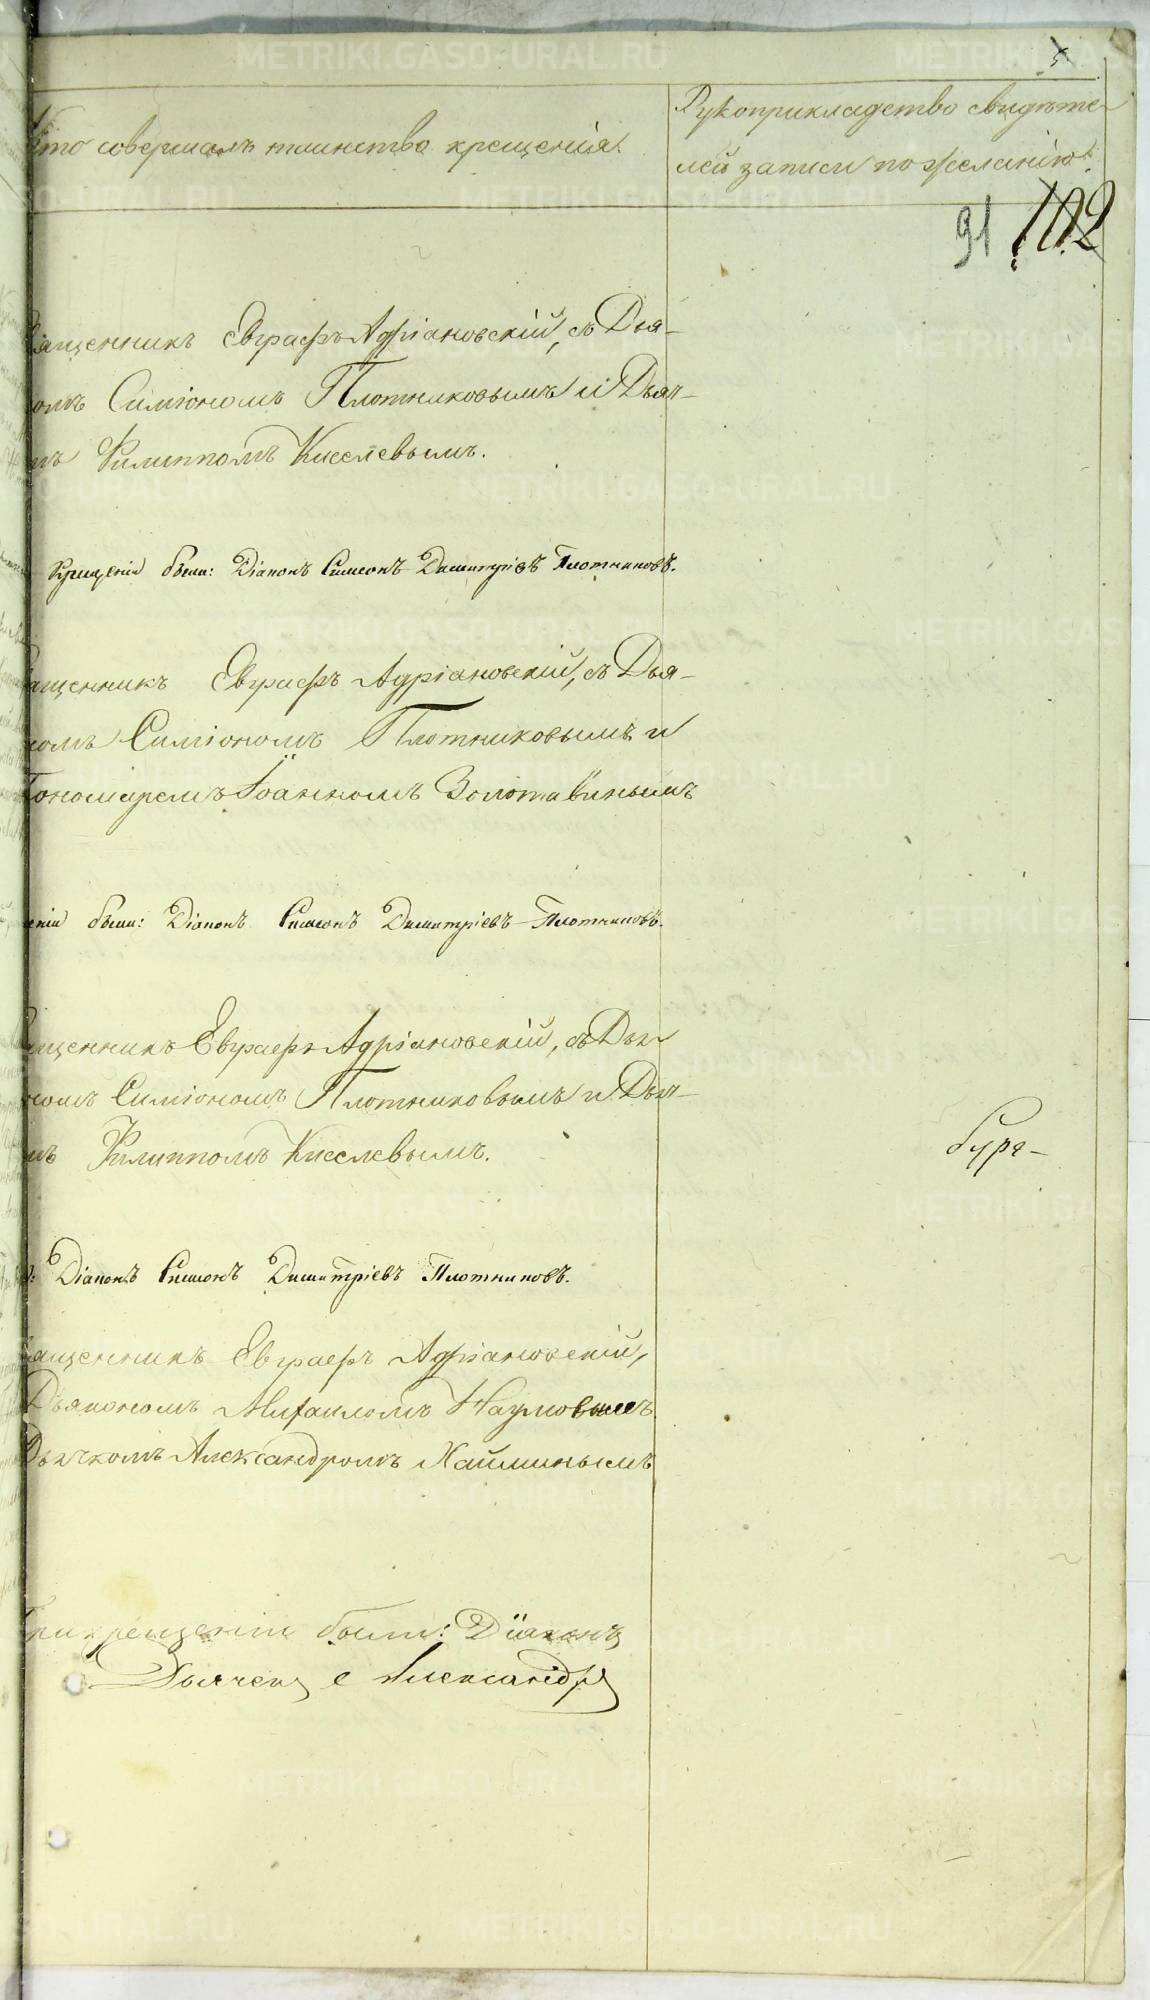 Кто совершалъ таинство крещенія.
Рукоприкладство свидѣте-
лей записи по желанію.
91 102
ященникъ Евграфъ Адріановскій, съ Дья-
Симіономъ Плотниковымъ и Дьяч-
Филиппомъ Киселевымъ.
крещеніи были: Діаконъ Симеонъ Димитріевъ Плотниковъ.
ащенникъ Евграфъ Адріановскій, съ Дья-
номъ Симіономъ Плотниковымъ и
Пономаремъ Іоанномъ Золотавинымъ
еніи были: Діаконъ Симеонъ Димитріевъ Плотниковъ.
ященникъ Евграфъ Адріановскій, съ Дья-
номъ Симіономъ Плотниковымъ и Дьяч-
мъ Филиппомъ Киселевымъ.
буря-
Діаконъ Симеонъ Димитріевъ Плотниковъ.
ященникъ Евграфъ Адріановскій,
Дьякономъ Михаиломъ Наумовымъ
Дьячкомъ Александромъ Хайминымъ
При крещеніи были: Діаконъ
Дьячекъ Александръ
METRIKI.GASO-URAL.RU